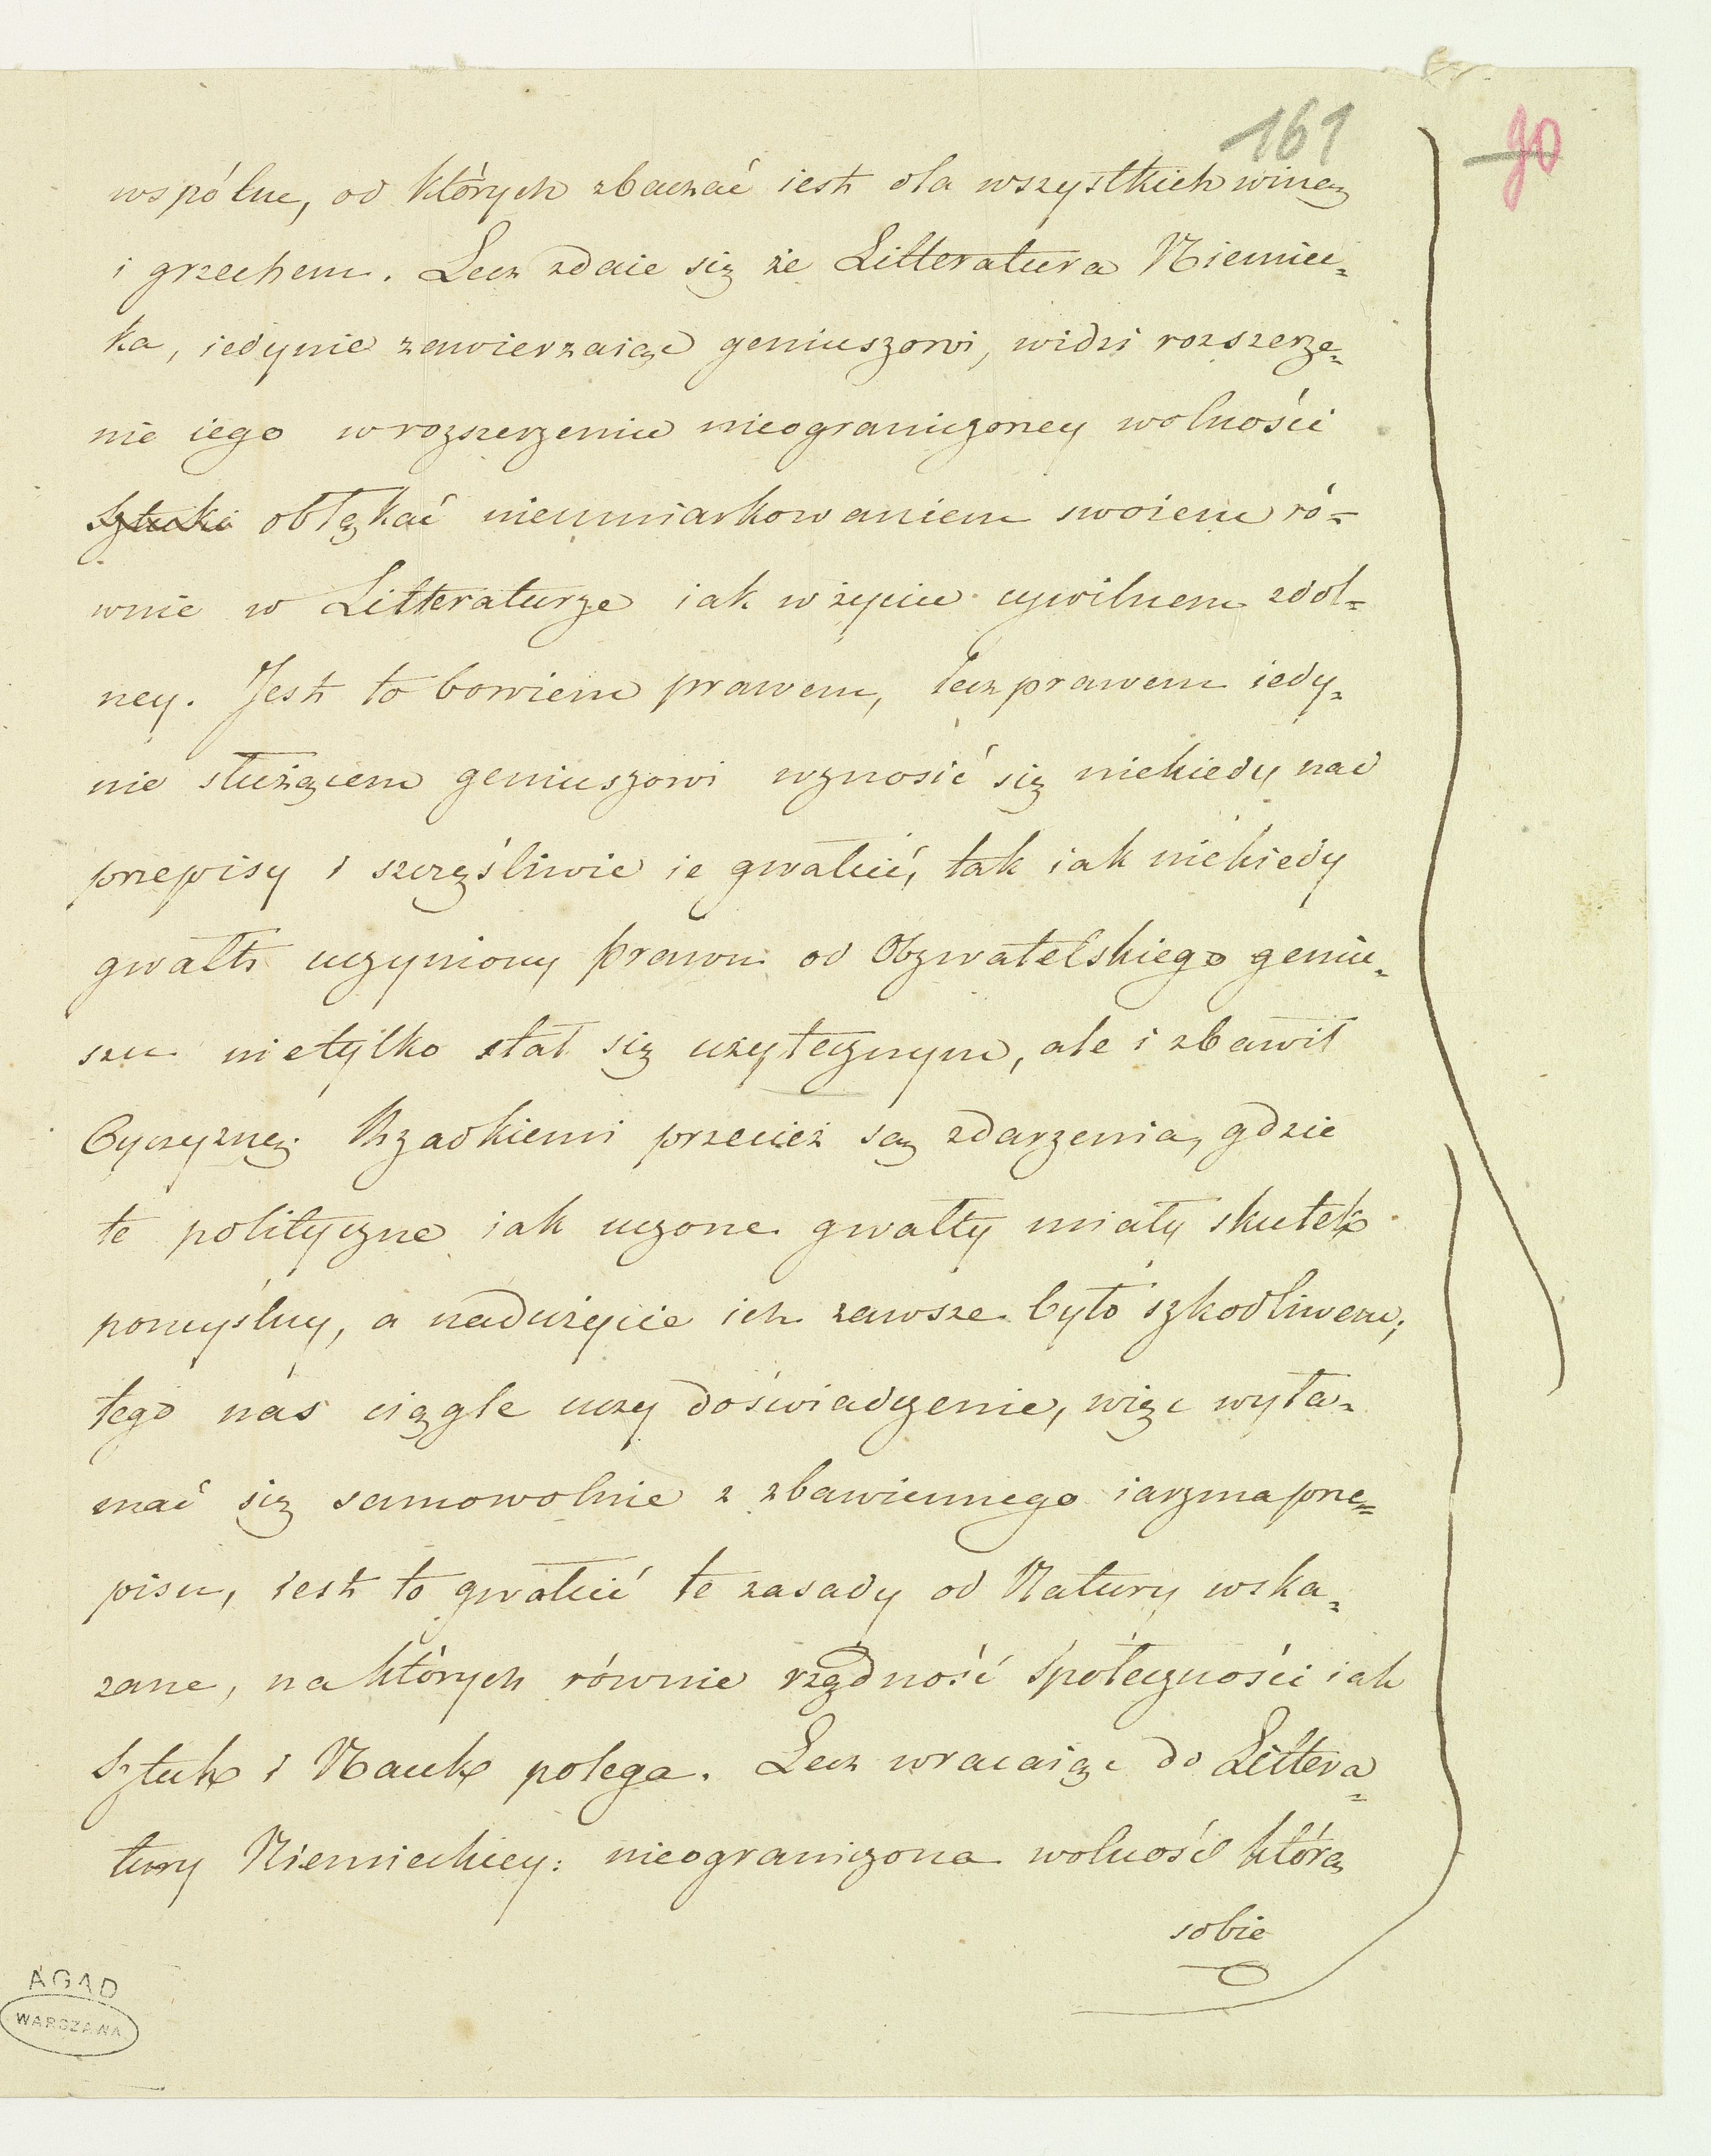 161
90
wspólne, od których zbaczać iest dla wszystkich winą
i grzechem. Lecz zdaie się że Litteratura Niemiec=
ka, iedynie zawierzaiąc geniuszowi, widzi rozszerze=
nie iego w rozszerzeniu nieograniczoney wolności
Sztuki obłąkać nieumiarkowaniem swoiem ró=
wnie w Litteraturze iak w życiu cywilnem zdol=
ney. Jest to bowiem prawem, lecz prawem iedy=
nie służącem geniuszowi wznosić się niekiedy nad
przepisy i szczęśliwie ie gwałcić, tak iak niekiedy
gwałt uczyniony prawu od Obywatelskiego geniu=
szu nietylko stał się użytecznym, ale i zbawił
Oyczyznę. Rzadkiemi przecież są zdarzenia, gdzie
te polityczne iak uczone gwałty miały skutek
pomyślny, a nadużycie ich zawsze było szkodliwem;
tego nas ciągle uczy doświadczenie, więc wyła=
mać się samowolnie z zbawiennego iarzma prze=
pisu, iest to gwałcić te zasady od Natury wska=
zane, na których równie rządność społeczności iak
Sztuk i Nauk polega. Lecz wracaiąc do Littera=
tury Niemieckiey: nieograniczona wolność którą
sobie
AGAD
WARSZAWA